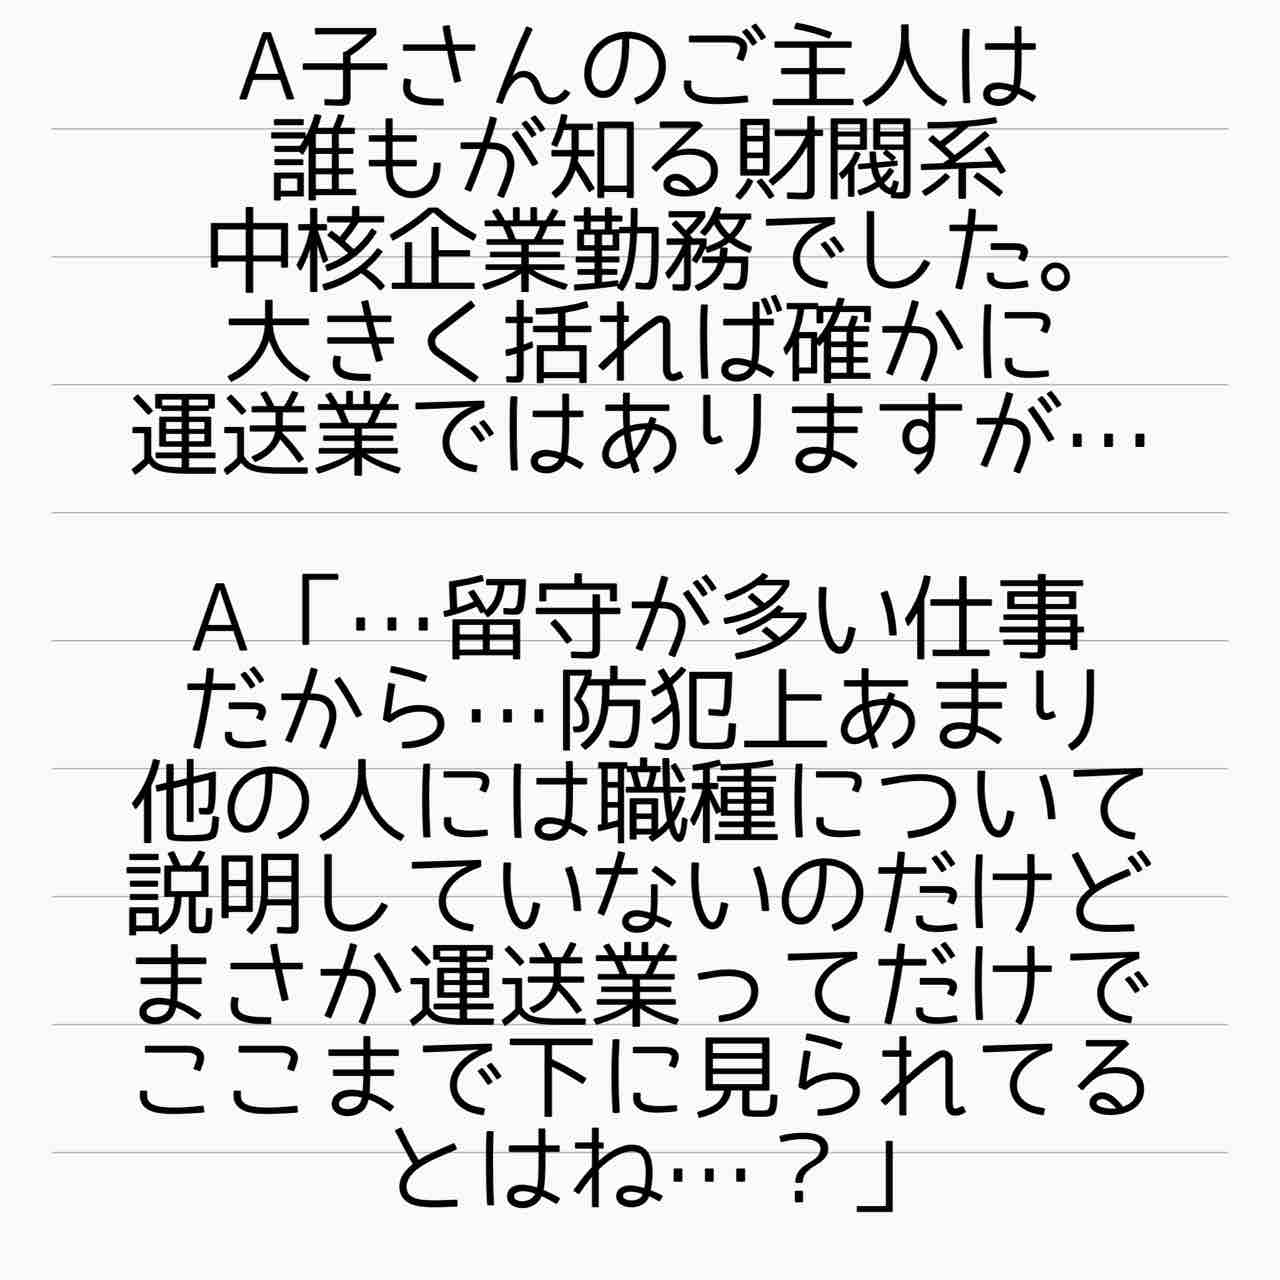 A子さんのご主人は
誰もが知る財閥系
中核企業勤務でした。
大きく括れば確かに
運送業ではありますが…
A「…留守が多い仕事
だから…防犯上あまり
他の人には職種について
説明していないのだけど
まさか運送業ってだけで
ここまで下に見られてる
とはね…？」